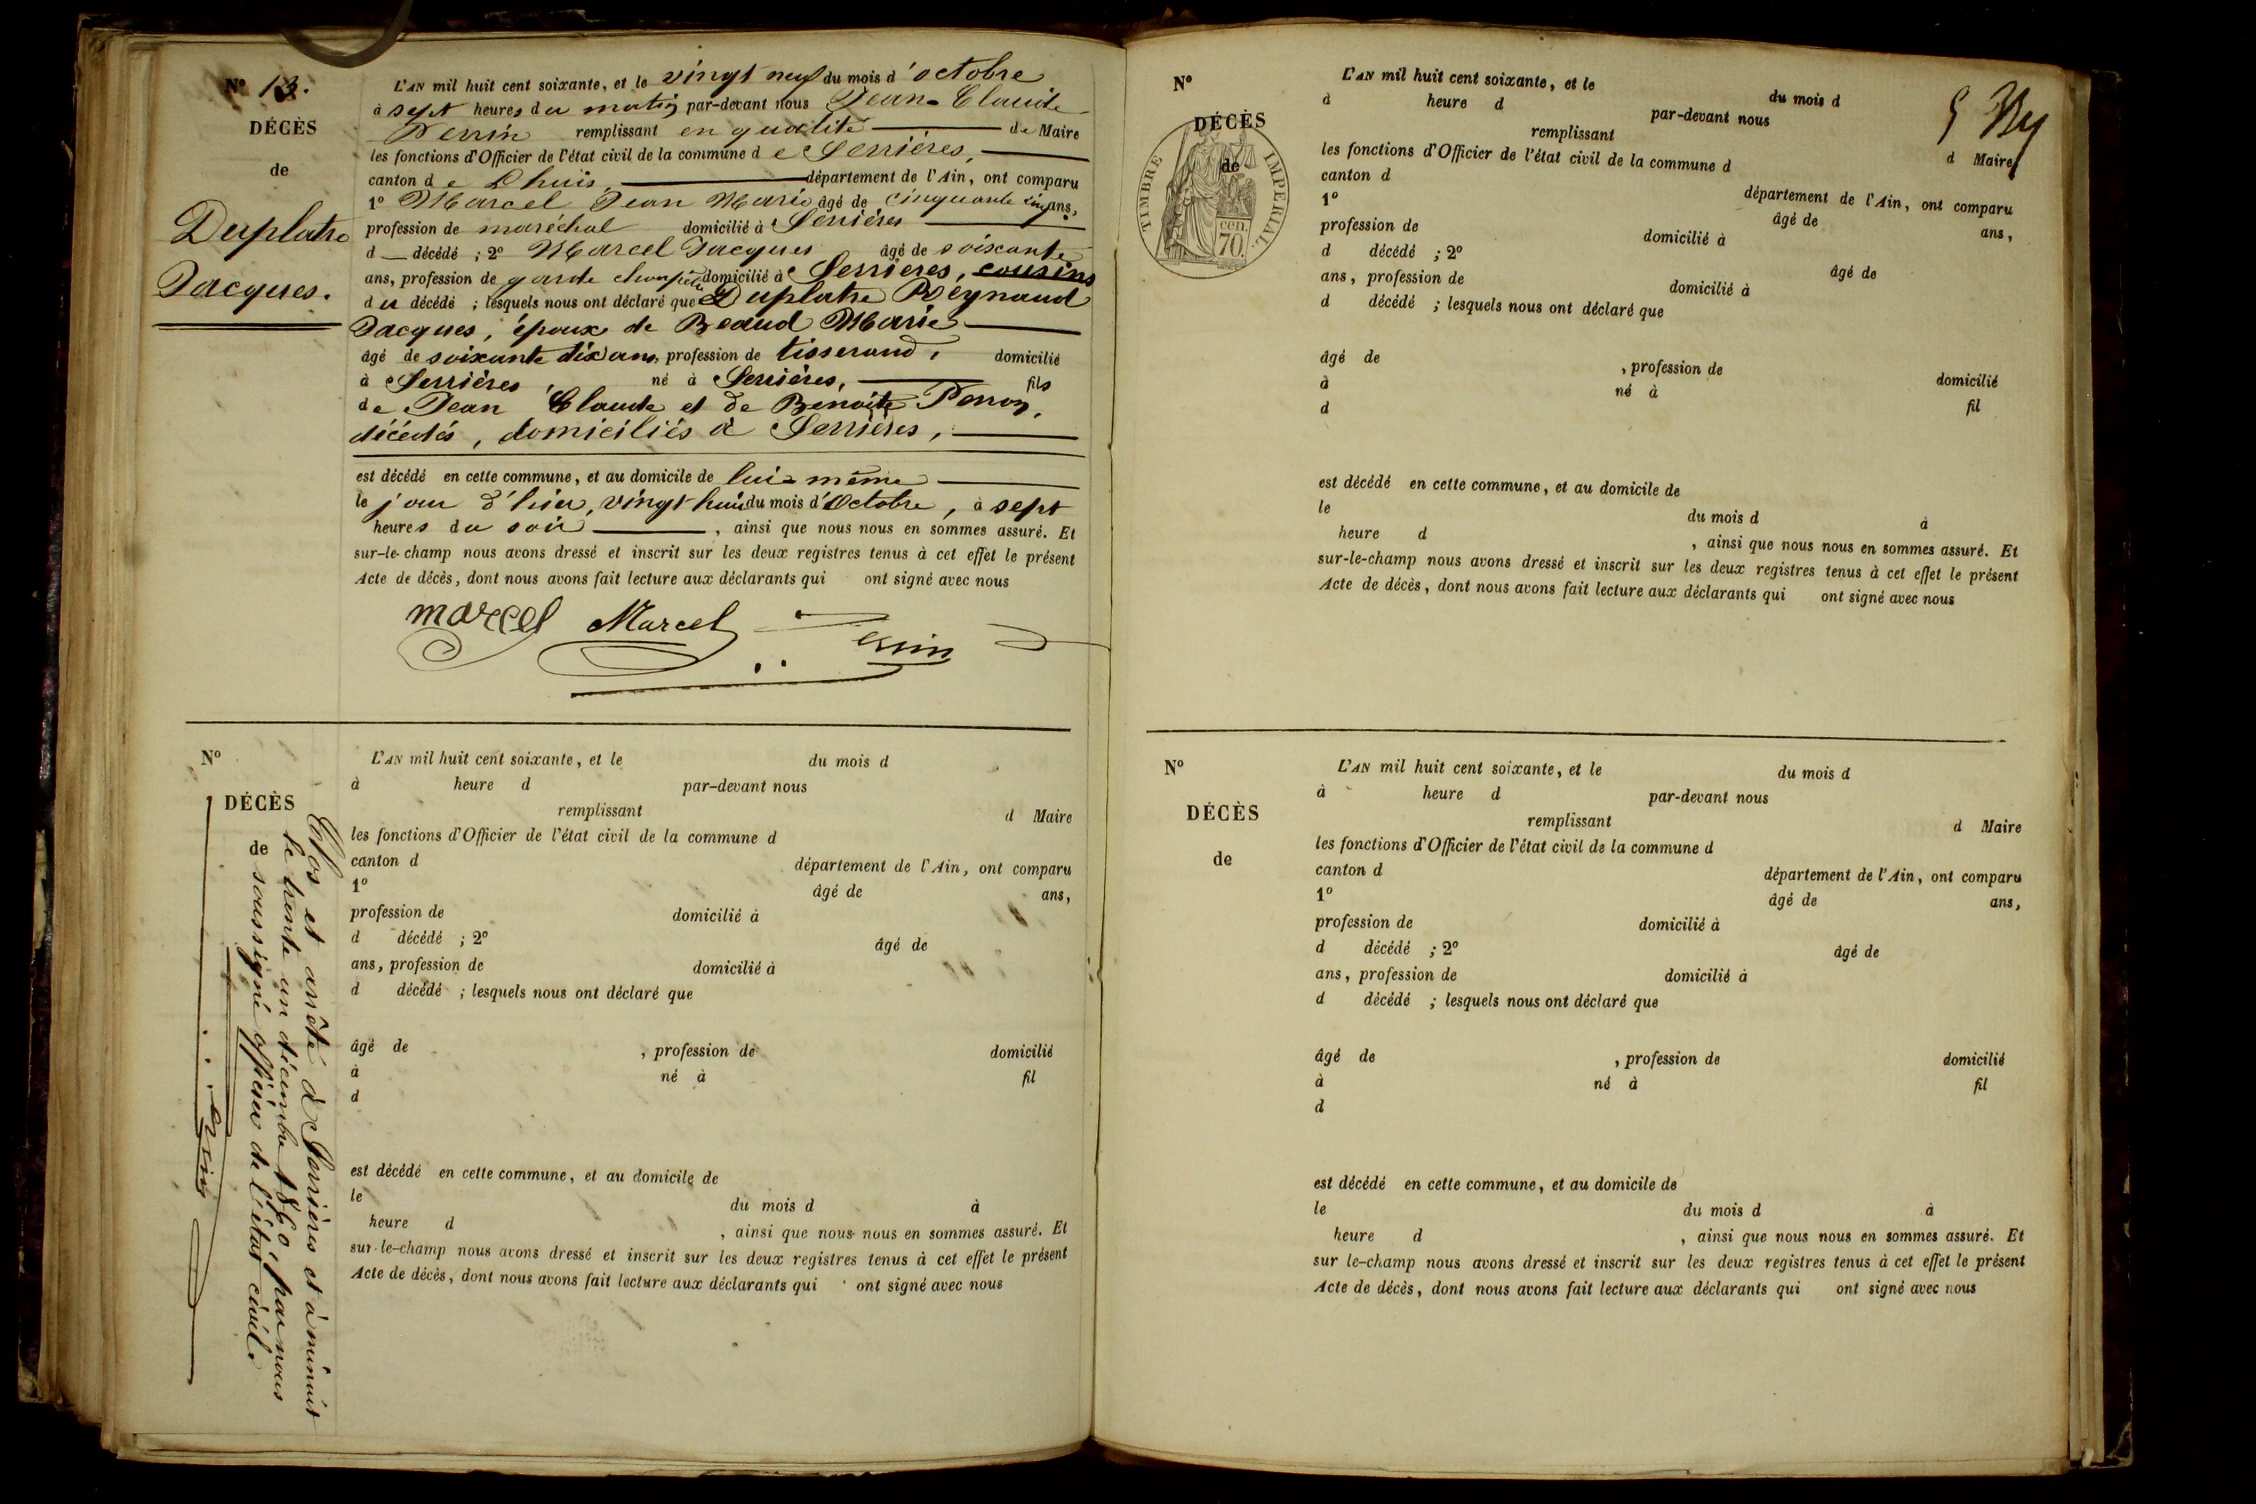 N° 13.
DÉCÈS
de
Duplatre
Jacques.
L'AN mil huit cent soixante, et le vingt neuf du mois d'octobre
à sept heures du matin par-devant nous Jean-Claude
Perrin remplissant en qualité de Maire
les fonctions d'Officier de l'état civil de la commune de Serrières,
canton de Lhuis, département de l'Ain, ont comparu
1° Marcel Jean Marie âgé de cinquante cinq ans,
profession de maréchal domicilié à Serrières
d décédé ; 2° Marcel Jacques âgé de soixante
ans, profession de garde champêtre domicilié à Serrières, cousins
du décédé ; lesquels nous ont déclaré que Duplatre Reynaud
Jacques, époux de Beaud Marie
âgé de soixante dix ans, profession de tisserand, domicilié
à Serrières, né à Serrières, fils
de Jean Claude et de Benoite Perron,
décédés, domiciliés à Serrières,
est décédé en cette commune, et au domicile de lui-même
le jour d'hier, vingt huit du mois d'Octobre, à sept
heures du soir , ainsi que nous nous en sommes assuré. Et
sur-le-champ nous avons dressé et inscrit sur les deux registres tenus à cet effet le présent
Acte de décès, dont nous avons fait lecture aux déclarants qui ont signé avec nous
marcel Marcel Perrin
N°
DÉCÈS
de
Clos et arrêté à Serrières et à minuit
le trente un décembre 1860, par nous
soussigné officier de l'état civil.
Perrin
L'AN mil huit cent soixante, et le du mois d
à heure d par-devant nous
remplissant d Maire
les fonctions d'Officier de l'état civil de la commune d
canton d département de l'Ain, ont comparu
1° âgé de ans,
profession de domicilié à
d décédé ; 2° âgé de
ans, profession de domicilié à
d décédé ; lesquels nous ont déclaré que
âgé de , profession de domicilié
à né à fil
d
est décédé en cette commune, et au domicile de
le du mois d à
heure d , ainsi que nous nous en sommes assuré. Et
sur-le-champ nous avons dressé et inscrit sur les deux registres tenus à cet effet le présent
Acte de décès, dont nous avons fait lecture aux déclarants qui ont signé avec nous
N°
DÉCÈS
de
TIMBRE IMPÉRIAL
cen.
70.
L'AN mil huit cent soixante, et le du mois d
à heure d par-devant nous
remplissant d Maire
les fonctions d'Officier de l'état civil de la commune d
canton d département de l'Ain, ont comparu
1° âgé de ans,
profession de domicilié à
d décédé ; 2° âgé de
ans, profession de domicilié à
d décédé ; lesquels nous ont déclaré que
âgé de , profession de domicilié
à né à fil
d
est décédé en cette commune, et au domicile de
le du mois d à
heure d , ainsi que nous nous en sommes assuré. Et
sur-le-champ nous avons dressé et inscrit sur les deux registres tenus à cet effet le présent
Acte de décès, dont nous avons fait lecture aux déclarants qui ont signé avec nous
N°
DÉCÈS
de
L'AN mil huit cent soixante, et le du mois d
à heure d par-devant nous
remplissant d Maire
les fonctions d'Officier de l'état civil de la commune d
canton d département de l'Ain, ont comparu
1° âgé de ans,
profession de domicilié à
d décédé ; 2° âgé de
ans, profession de domicilié à
d décédé ; lesquels nous ont déclaré que
âgé de , profession de domicilié
à né à fil
d
est décédé en cette commune, et au domicile de
le du mois d à
heure d , ainsi que nous nous en sommes assuré. Et
sur le-champ nous avons dressé et inscrit sur les deux registres tenus à cet effet le présent
Acte de décès, dont nous avons fait lecture aux déclarants qui ont signé avec nous